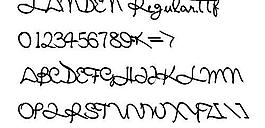 LANDEN Regular.ttf
0123456789<=>
ABCDEFGHIJKLMN
OPQRSTUVWXYZ[\]